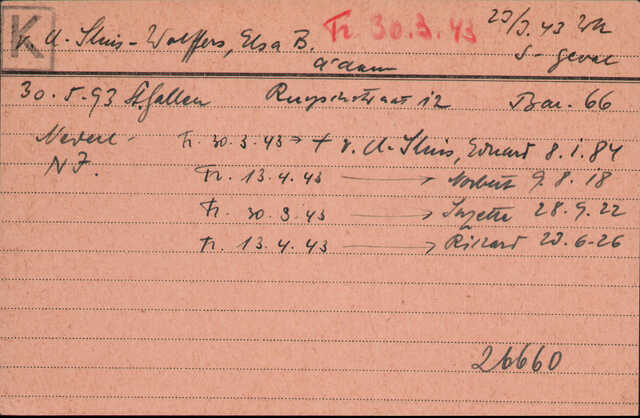 K
v. d. Sluis-Wolffers, Elsa B. Tr. 30.3.43 23/3.43 Wk
A'dam S-geval
30.5-93 St. Gallen Ruyschstraat 12 Bar. 66
Nederl. Tr. 30-3-43 → + v. d. Sluis, Eduard 8.1.84
N I. Tr. 13.4.43 → Norbert 9.8.18
Tr. 30.3.43 → Suzette 28.9.22
Tr. 13.4.43 → Richard 23.6-26
26660